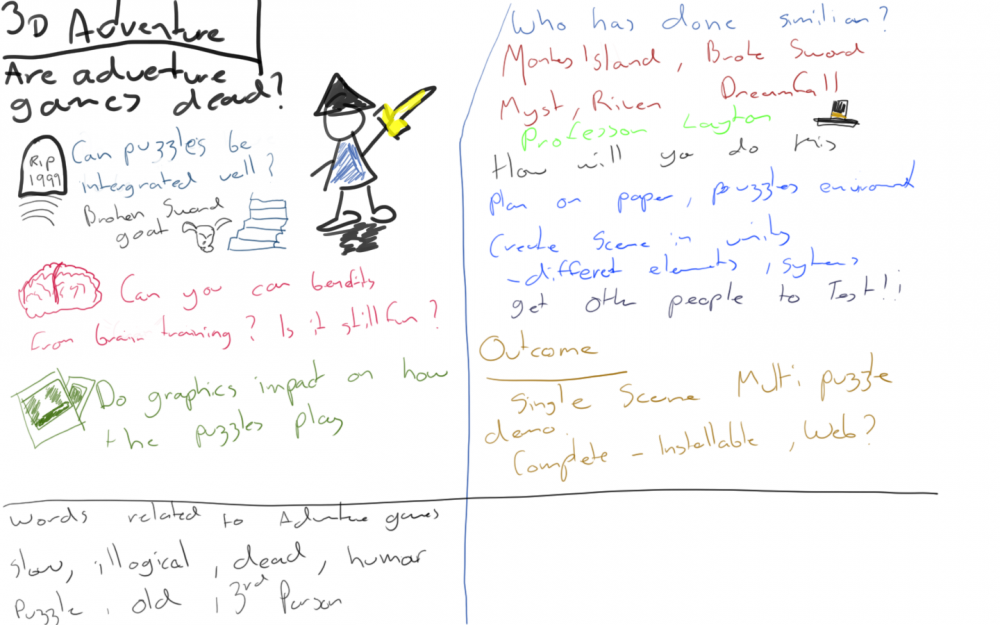 3D Adventure
Are adveture
games dead?
R.I.P
1999
Can puzzles be
intergrated well?
Broken Sword
goat
Can you can benfits
from brain training? Is it still fun?
Do graphics impact on how
the puzzles play
Who has done similiar?
Monkey Island, Broke Sword
Myst, Riven DreamFall
Professor Layton
How will yo do this
plan on paper, pouzzles enviromet
Create Scene in unity
- differet elements, systems
get other people to Test!!
Outcome
Single Scene Multi puzzle
demo.
Complete - Installable, Web?
Words related to Adventure games
slow, illogical, dead, humor
Puzzle, old, 3rd Person